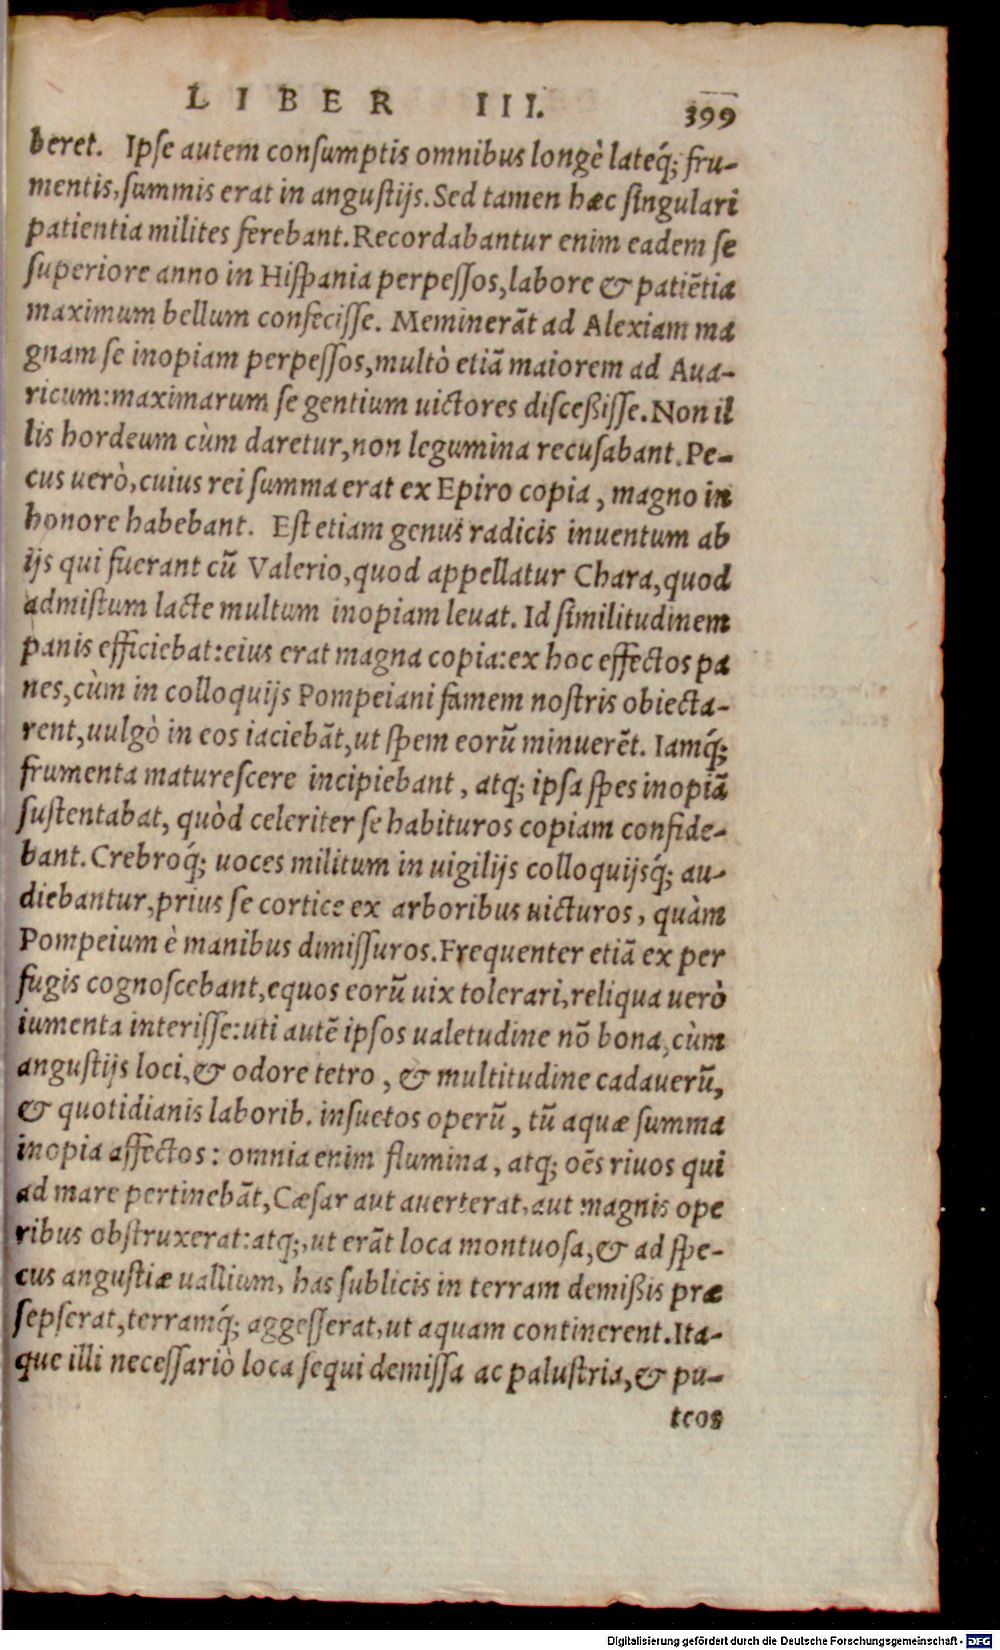 LIBER III. 399
beret. Ipse autem consumptis omnibus longè lateq́; fru-
mentis, summis erat in angustijs. Sed tamen hæc singulari
patientia milites ferebant. Recordabantur enim eadem se
superiore anno in Hispania perpessos, labore & patiẽtia
maximum bellum confecisse. Meminerãt ad Alexiam ma
gnam se inopiam perpessos, multò etiã maiorem ad Aua-
ricum: maximarum se gentium uictores disceßisse. Non il
lis hordeum cùm daretur, non legumina recusabant. Pe-
cus uerò, cuius rei summa erat ex Epiro copia, magno in
honore habebant. Est etiam genus radicis inuentum ab
ijs qui fuerant cũ Valerio, quod appellatur Chara, quod
admistum lacte multum inopiam leuat. Id similitudinem
panis efficiebat: eius erat magna copia: ex hoc effectos pa
nes, cùm in colloquijs Pompeiani famem nostris obiecta-
rent, uulgò in eos iaciebãt, ut spem eorũ minuerẽt. Iamq́;
frumenta maturescere incipiebant, atq; ipsa spes inopiã
sustentabat, quòd celeriter se habituros copiam confide-
bant. Crebroq́; uoces militum in uigilijs colloquijsq́; au-
diebantur, prius se cortice ex arboribus uicturos, quàm
Pompeium è manibus dimissuros. Frequenter etiã ex per
fugis cognoscebant, equos eorũ uix tolerari, reliqua uerò
iumenta interisse: uti autẽ ipsos ualetudine nõ bona, cùm
angustijs loci, & odore tetro, & multitudine cadauerũ,
& quotidianis laborib. insuetos operũ, tũ aquæ summa
inopia affectos: omnia enim flumina, atq; oẽs riuos qui
ad mare pertinebãt, Cæsar aut auerterat, aut magnis ope
ribus obstruxerat: atq;, ut erãt loca montuosa, & ad spe-
cus angustiæ uallium, has sublicis in terram demißis præ
sepserat, terramq́; aggesserat, ut aquam continerent. Ita-
que illi necessariò loca sequi demissa ac palustria, & pu-
teos
Digitalisierung gefördert durch die Deutsche Forschungsgemeinschaft - DFG